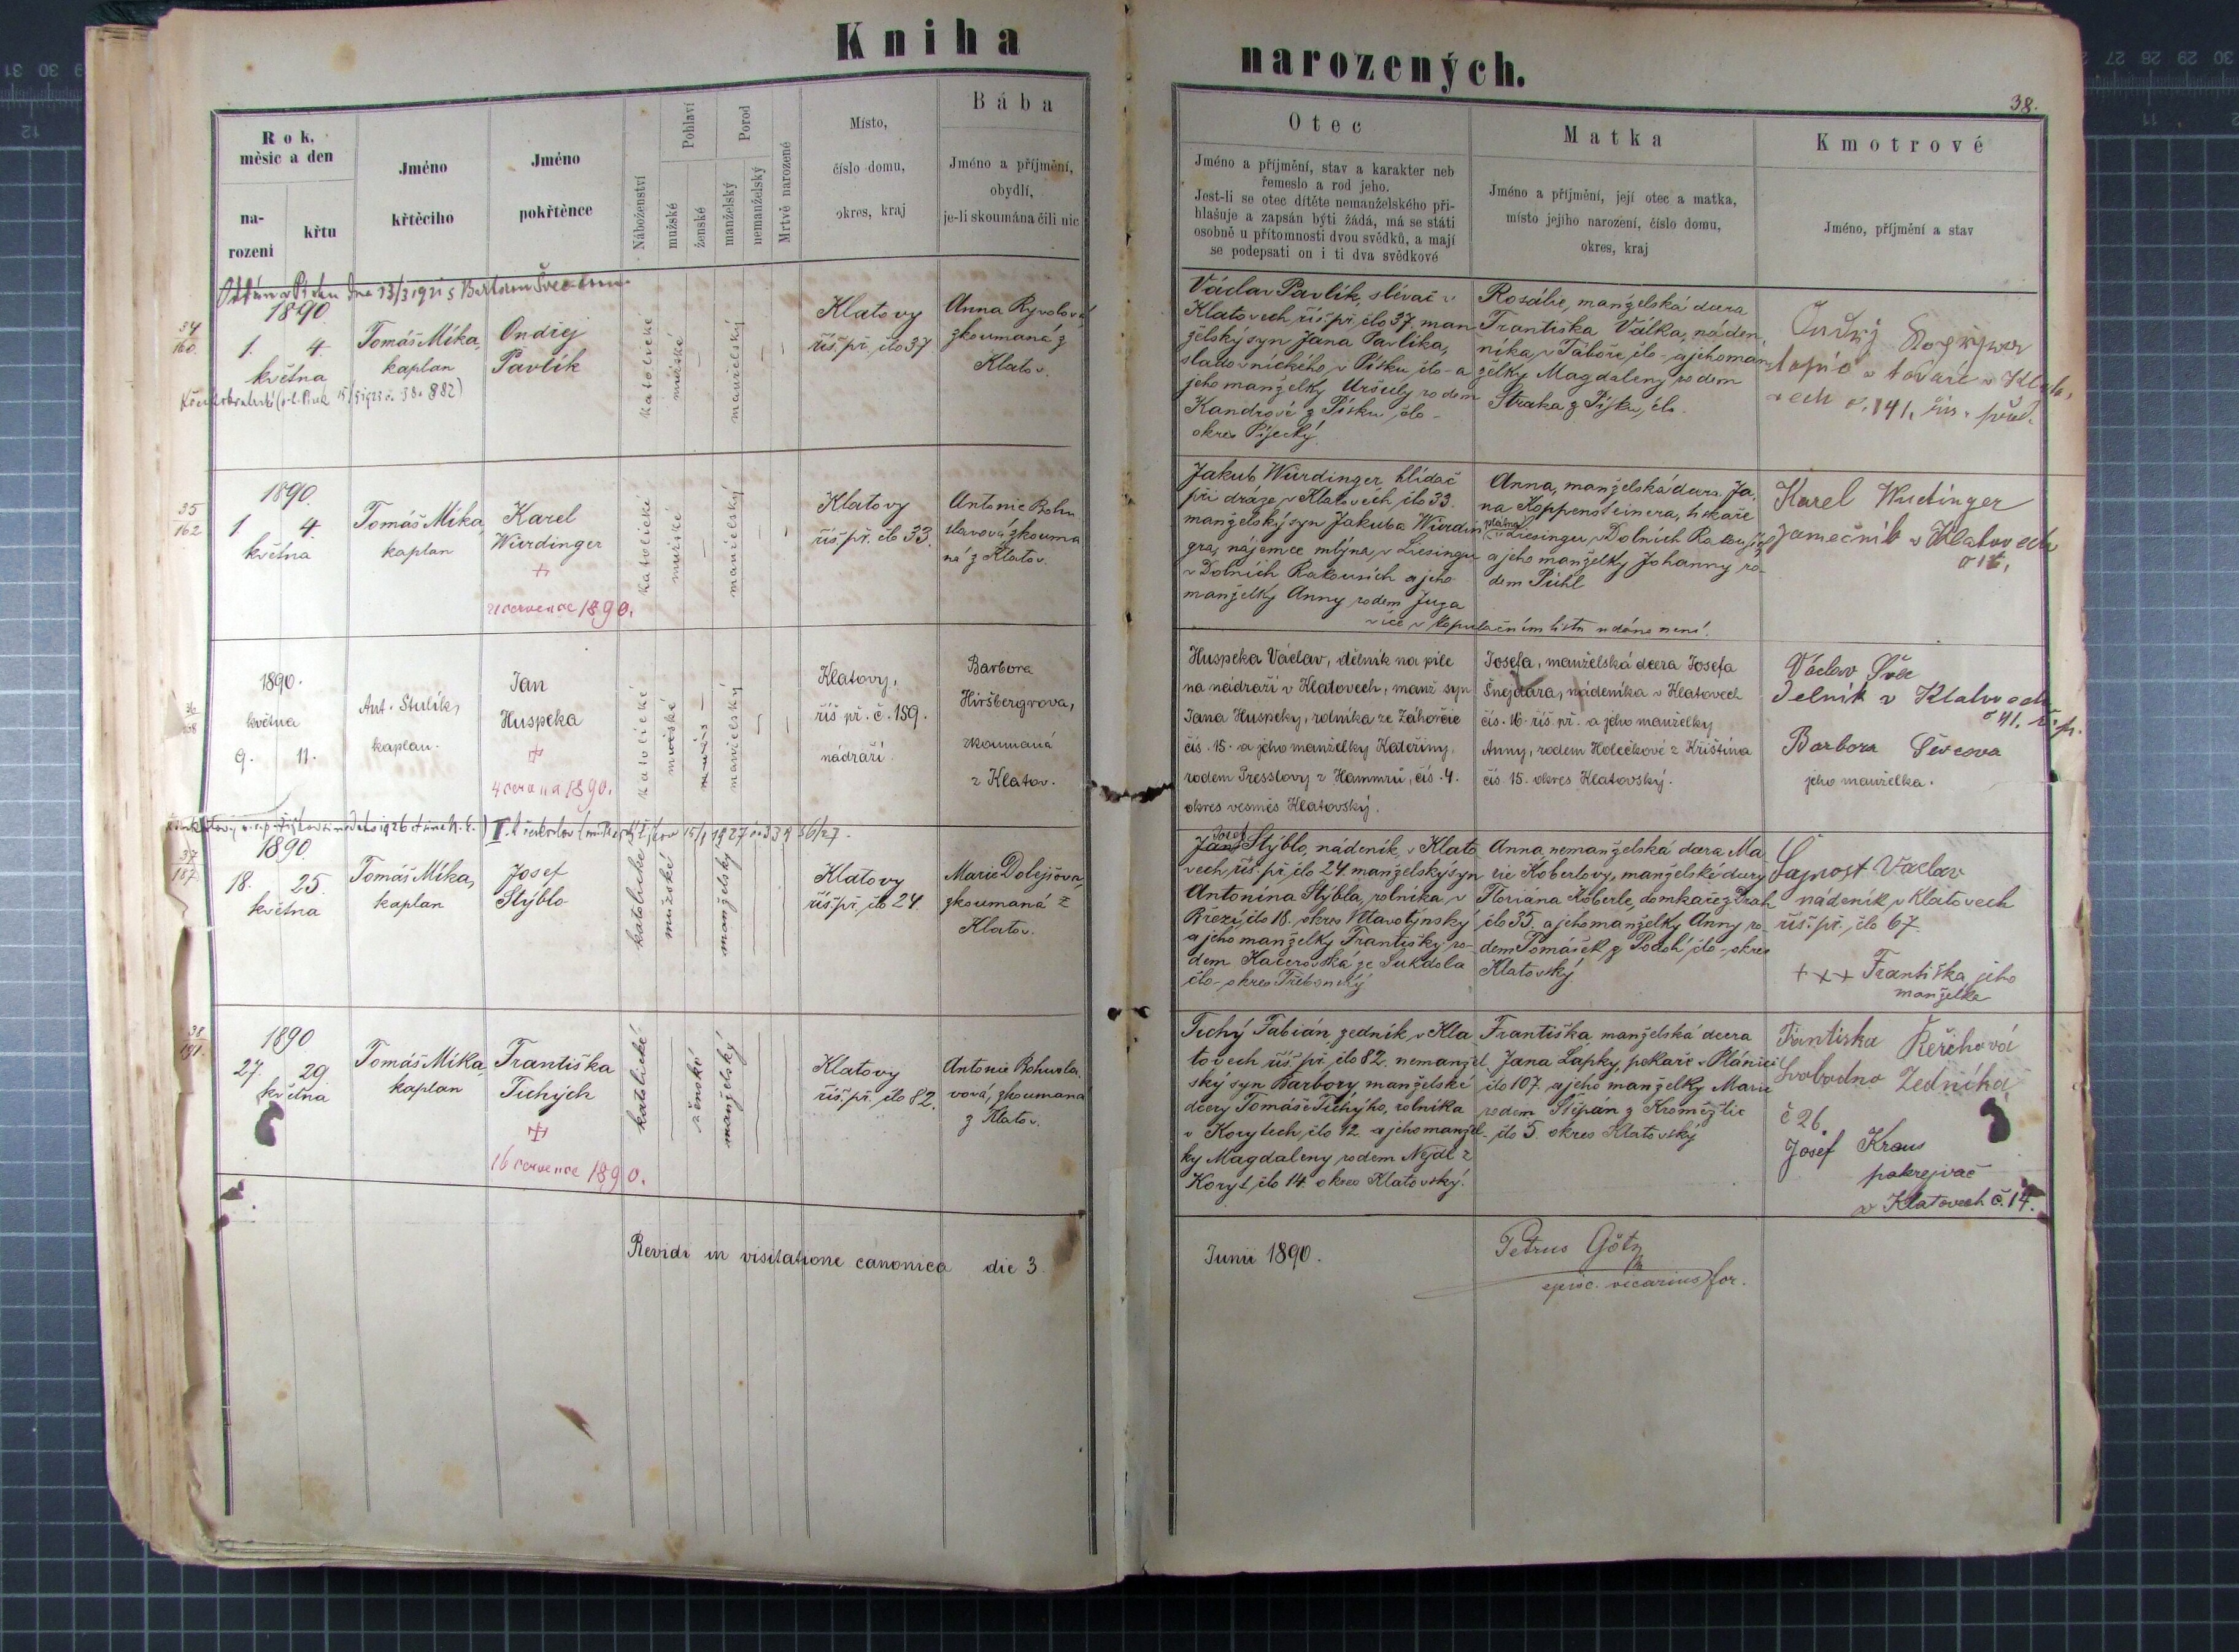 Kniha
narozených.
38.
Rok,
měsíc a den
na-
rozeni
křtu
Jméno
křtěcího
Jméno
pokřtěnce
Náboženství
Pohlaví
mužské
ženské
Porod
manželský
nemanželský
Mrtvě narozené
Místo,
číslo domu,
okres, kraj
Bába
Jméno a příjmění,
obydlí,
je-li skoumána čili nic
Otec
Jméno a příjmění, stav a karakter neb
řemeslo a rod jeho.
Jest-li se otec dítěte nemanželského při-
hlašuje a zapsán býti žádá, má se státi
osobně u přítomnosti dvou svědků, a mají
se podepsati on i ti dva svědkové
Matka
Jméno a příjmění, její otec a matka,
místo jejího narození, číslo domu,
okres, kraj
Kmotrové
Jméno, příjmění a stav
34
160.
1890
1. 4.
května
Tomáš Míka,
kaplan
Ondřej
Pavlík
katolické
mužské
manželský
Klatovy
říš. př. člo 37
Anna Ryvolová
zkoumaná z
Klatov.
Václav Pavlík, slévač v
Klatovech, říš. př. člo 37. man
želský syn Jana Pavlíka,
sladovnického v Písku člo - a
jeho manželky Uršuly rodem
Kandrové z Písku člo -
okres Písecký.
Rosálie, manželská dcera
Františka Války, náden
níka v Táboře člo - a jeho man
želky Magdaleny rodem
Straka z Písku, člo.
topič v továrě v Klato,
vech č. 141. říš. před.
35
162
1890.
1 4.
května
Tomáš Míka,
kaplan
Karel
Würdinger
+
21 července 1890.
katolické
mužské
manželský
Klatovy
říš. př. čl. 33.
Antonie Bohu
slavová zkouma
ná z Klatov.
Jakub Würdinger, hlídač
při dráze v Klatovech člo 33.
manželský syn Jakuba Würdin
gra, nájemce mlýna v Liesingu
v Dolních Rakousích a jeho
manželky Anny rodem Juga
více v kopulačním listu udáno není.
Anna, manželská dcera Ja,
na Koppensteinera, tiskaře
plátna v Liesingu v Dolních Rakousích
a jeho manželky Johanny ro-
dem Pühl
Karel Wudinger
zamečník v Klatovech
36
168
1890.
května
9. 11.
Ant. Stulík,
kaplan.
Jan
Huspeka
+
4 června 1890.
katolické
mužské
manželský
Klatovy,
říš př. č. 159.
nádraží.
Barbora
Hiršbergrova,
zkoumaná
z Klatov.
Huspeka Václav, dělník na pile
na nádraží v Klatovech, manž syn
Jana Huspeky, rolníka ze Záhorčic
čís. 15. a jeho manželky Kateřiny,
rodem Presslovy z Hammrů, čís. 4.
okres vesměs Klatovský.
Josefa, manželská dcera Josefa
Šnejdara, nádeníka v Klatovech
čís. 16. říš. př. a jeho manželky
Anny, rodem Holečkové z Křištína
čís. 15. okres Klatovský.
Václav Švec
Delník v Klatovech
č 41. ř. p.
Barbora Švecova
jeho manželka.
37
187.
1890.
18. 25.
května
Tomáš Míka,
kaplan
Josef
Stýblo
katolické
mužské
manželský
Klatovy
říš. př. člo 24.
Marie Dolejšova,
zkoumaná z
Klatov.
Josef
Jan Stýblo, nádeník v Klato
vech, říš. př. člo 24. manželský syn
Antonína Stýbla, rolníka v
Březí, člo 18. okres Vltavotýnský
a jeho manželky Františky ro-
dem Kačerovská ze Sukdola
člo - okres Třeboňský
Anna, nemanželská dcera Ma
rie Köberlovy, manželské dcery
Floriána Köberle, domkaře z Drah
člo 35. a jeho manželky Anny ro-
dem Tomášek z Podolí člo - okres
Klatovský.
Václav
nádeník v Klatovech
říš. př., člo 67.
+++ Františka jeho
manželka
38
191.
1890
27. 29.
května
Tomáš Míka,
kaplan
Františka
Tichých
+
16 července 1890.
katolické
ženské
manželský
Klatovy
říš. př. člo 82.
Antonie Bohusla
vová, zkoumaná
z Klatov.
Tichý Fabián, zedník v Kla
tovech říš. př. člo 82. nemanžel
ský syn Barbory manželské
dcery Tomáše Tichýho, rolníka
v Korytech, člo 12. a jeho manžel-
ky Magdaleny rodem Nejdl z
Koryt, člo 14. okres Klatovský.
Františka, manželská dcera
Jana Lapky, pekaře v Plánici
člo 107. a jeho manželky Marie
rodem Štěpán z Kroměždic
člo 5. okres Klatovský
Františka Řeřichová
Svobodna Zedníka
č 26.
Josef Kraus
pokrejvač
v Klatovech č. 14.
Revidi in visitatione canonica die 3.
Junii 1890.
Petrus Götz
episc. vicarius for.